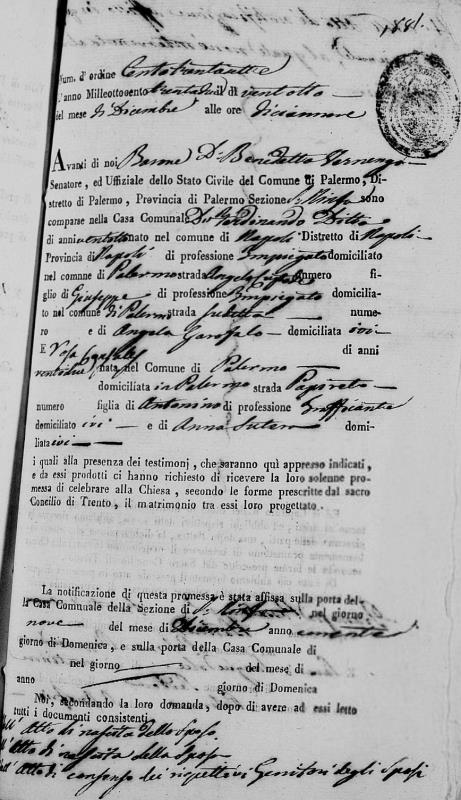 1831.
Num. d'ordine Centotrentasette
L'anno Milleottocento trentuno il dì ventotto —
del mese di Dicembre alle ore diciannove
Avanti di noi Barone Dr. Benedetto
Senatore, ed Uffiziale dello Stato Civile del Comune di Palermo, Di-
stretto di Palermo, Provincia di Palermo Sezione S. Ninfa sono
comparse nella Casa Comunale Dn. Ferdinando
di anni ventotto nato nel comune di Napoli Distretto di Napoli-
Provincia di Napoli di professione Impiegato domiciliato
nel comnne di Palermo strada numero fi-
glio di Giuseppe di professione Impiegato domicilia-
to nel comune di Palermo strada sudetta — nume-
ro e di Angela Garofalo — domiciliata ivi —
E Rosa di anni
ventidue nata nel Comune di Palermo —
domiciliata in Palermo strada Papireto —
numero figlia di Antonino di professione Trafficante
domiciliato ivi — e di Anna Sutera domi-
liata ivi —
i quali alla presenza dei testimonj, che saranno quì appresso indicati,
e da essi prodotti ci hanno richiesto di ricevere la loro solenne pro-
messa di celebrare alla Chiesa, secondo le forme prescritte dal sacro
Concilio di Trento, il matrimonio tra essi loro progettato.
La notificazione di questa promessa è stata affissa sulla porta del-
la Casa Comunale della Sezione di S. Ninfa nel giorno
nove del mese di Dicembre anno
giorno di Domenica, e sulla porta della Casa Comunale di
nel giorno — del mese di
anno giorno di Domenica
Noi, secondando la loro domanda, dopo di avere ad essi letto
tutti i documenti consistenti
Dell' Atto di nascita dello Sposo.
Dell' Atto di nascita della Sposa
Dell' Atto di consenso dei rispettivi Genitori degli Sposi